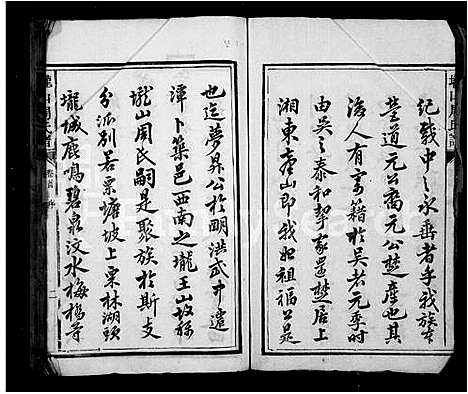 紀載中之永無者乎我族
營道元公裔元公楚產也其
後人有寄籍於吳者元季時
由吳之泰和挈家置楚居上
湘東壟山即我始祖福公是
也迄夢昇公於明洪武中遷
潭卜築邑西南之壠王山故稱
壠山周氏嗣是聚族於斯支
分派別若栗塘坡上栗林湖頭
壠城鹿鳴碧泉汶水梅橋等
壠山周氏
卷首
序